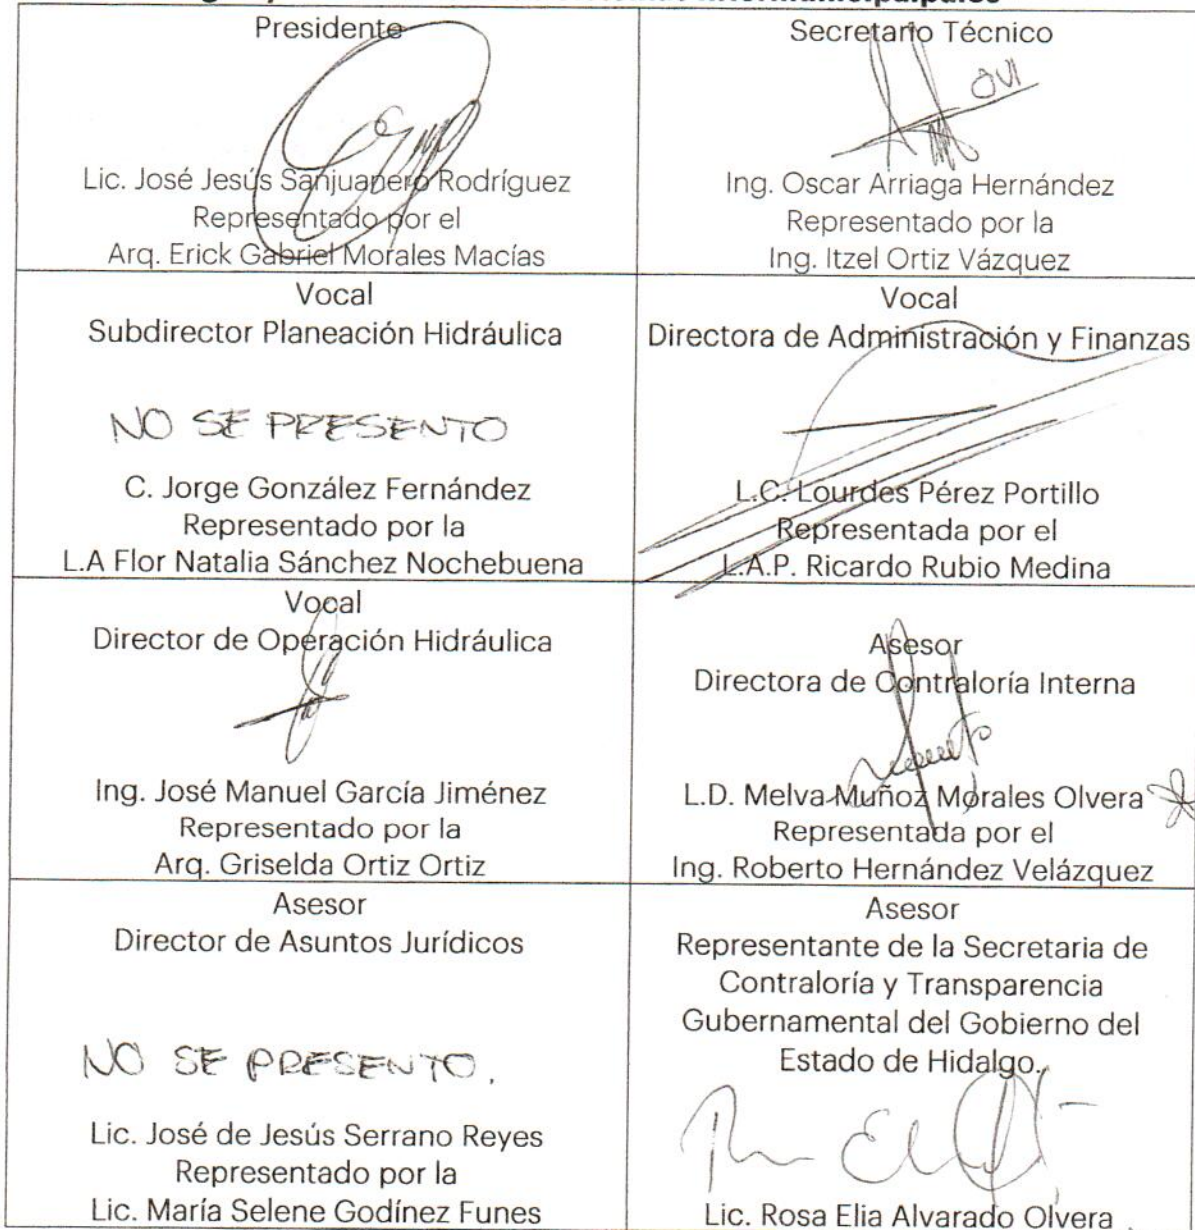 Presidente
Lic. José Jesús Sanjuanero Rodríguez
Representado por el
Arq. Erick Gabriel Morales Macías
Secretario Técnico
OVI
Ing. Oscar Arriaga Hernández
Representado por la
Ing. Itzel Ortiz Vázquez
Vocal
Subdirector Planeación Hidráulica
NO SE PRESENTO
C. Jorge González Fernández
Representado por la
L.A Flor Natalia Sánchez Nochebuena
Vocal
Directora de Administración y Finanzas
L.C. Lourdes Pérez Portillo
Representada por el
L.A.P. Ricardo Rubio Medina
Vocal
Director de Operación Hidráulica
Ing. José Manuel García Jiménez
Representado por la
Arq. Griselda Ortiz Ortiz
Asesor
Directora de Contraloría Interna
L.D. Melva Muñoz Morales Olvera
Representada por el
Ing. Roberto Hernández Velázquez
Asesor
Director de Asuntos Jurídicos
NO SE PRESENTO.
Lic. José de Jesús Serrano Reyes
Representado por la
Lic. María Selene Godínez Funes
Asesor
Representante de la Secretaria de
Contraloría y Transparencia
Gubernamental del Gobierno del
Estado de Hidalgo.
Lic. Rosa Elia Alvarado Olvera